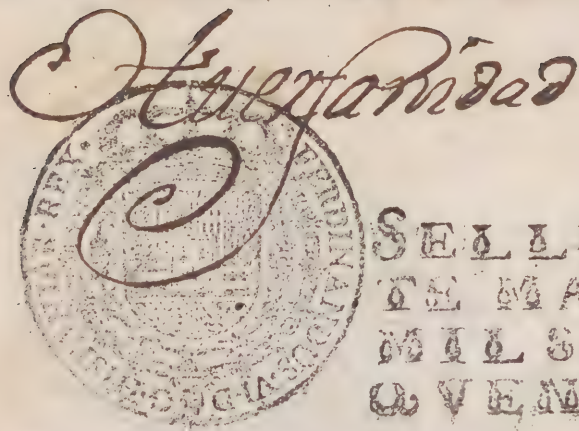 Huerfanidad
SELL
TE MA
MIL S
QVEN